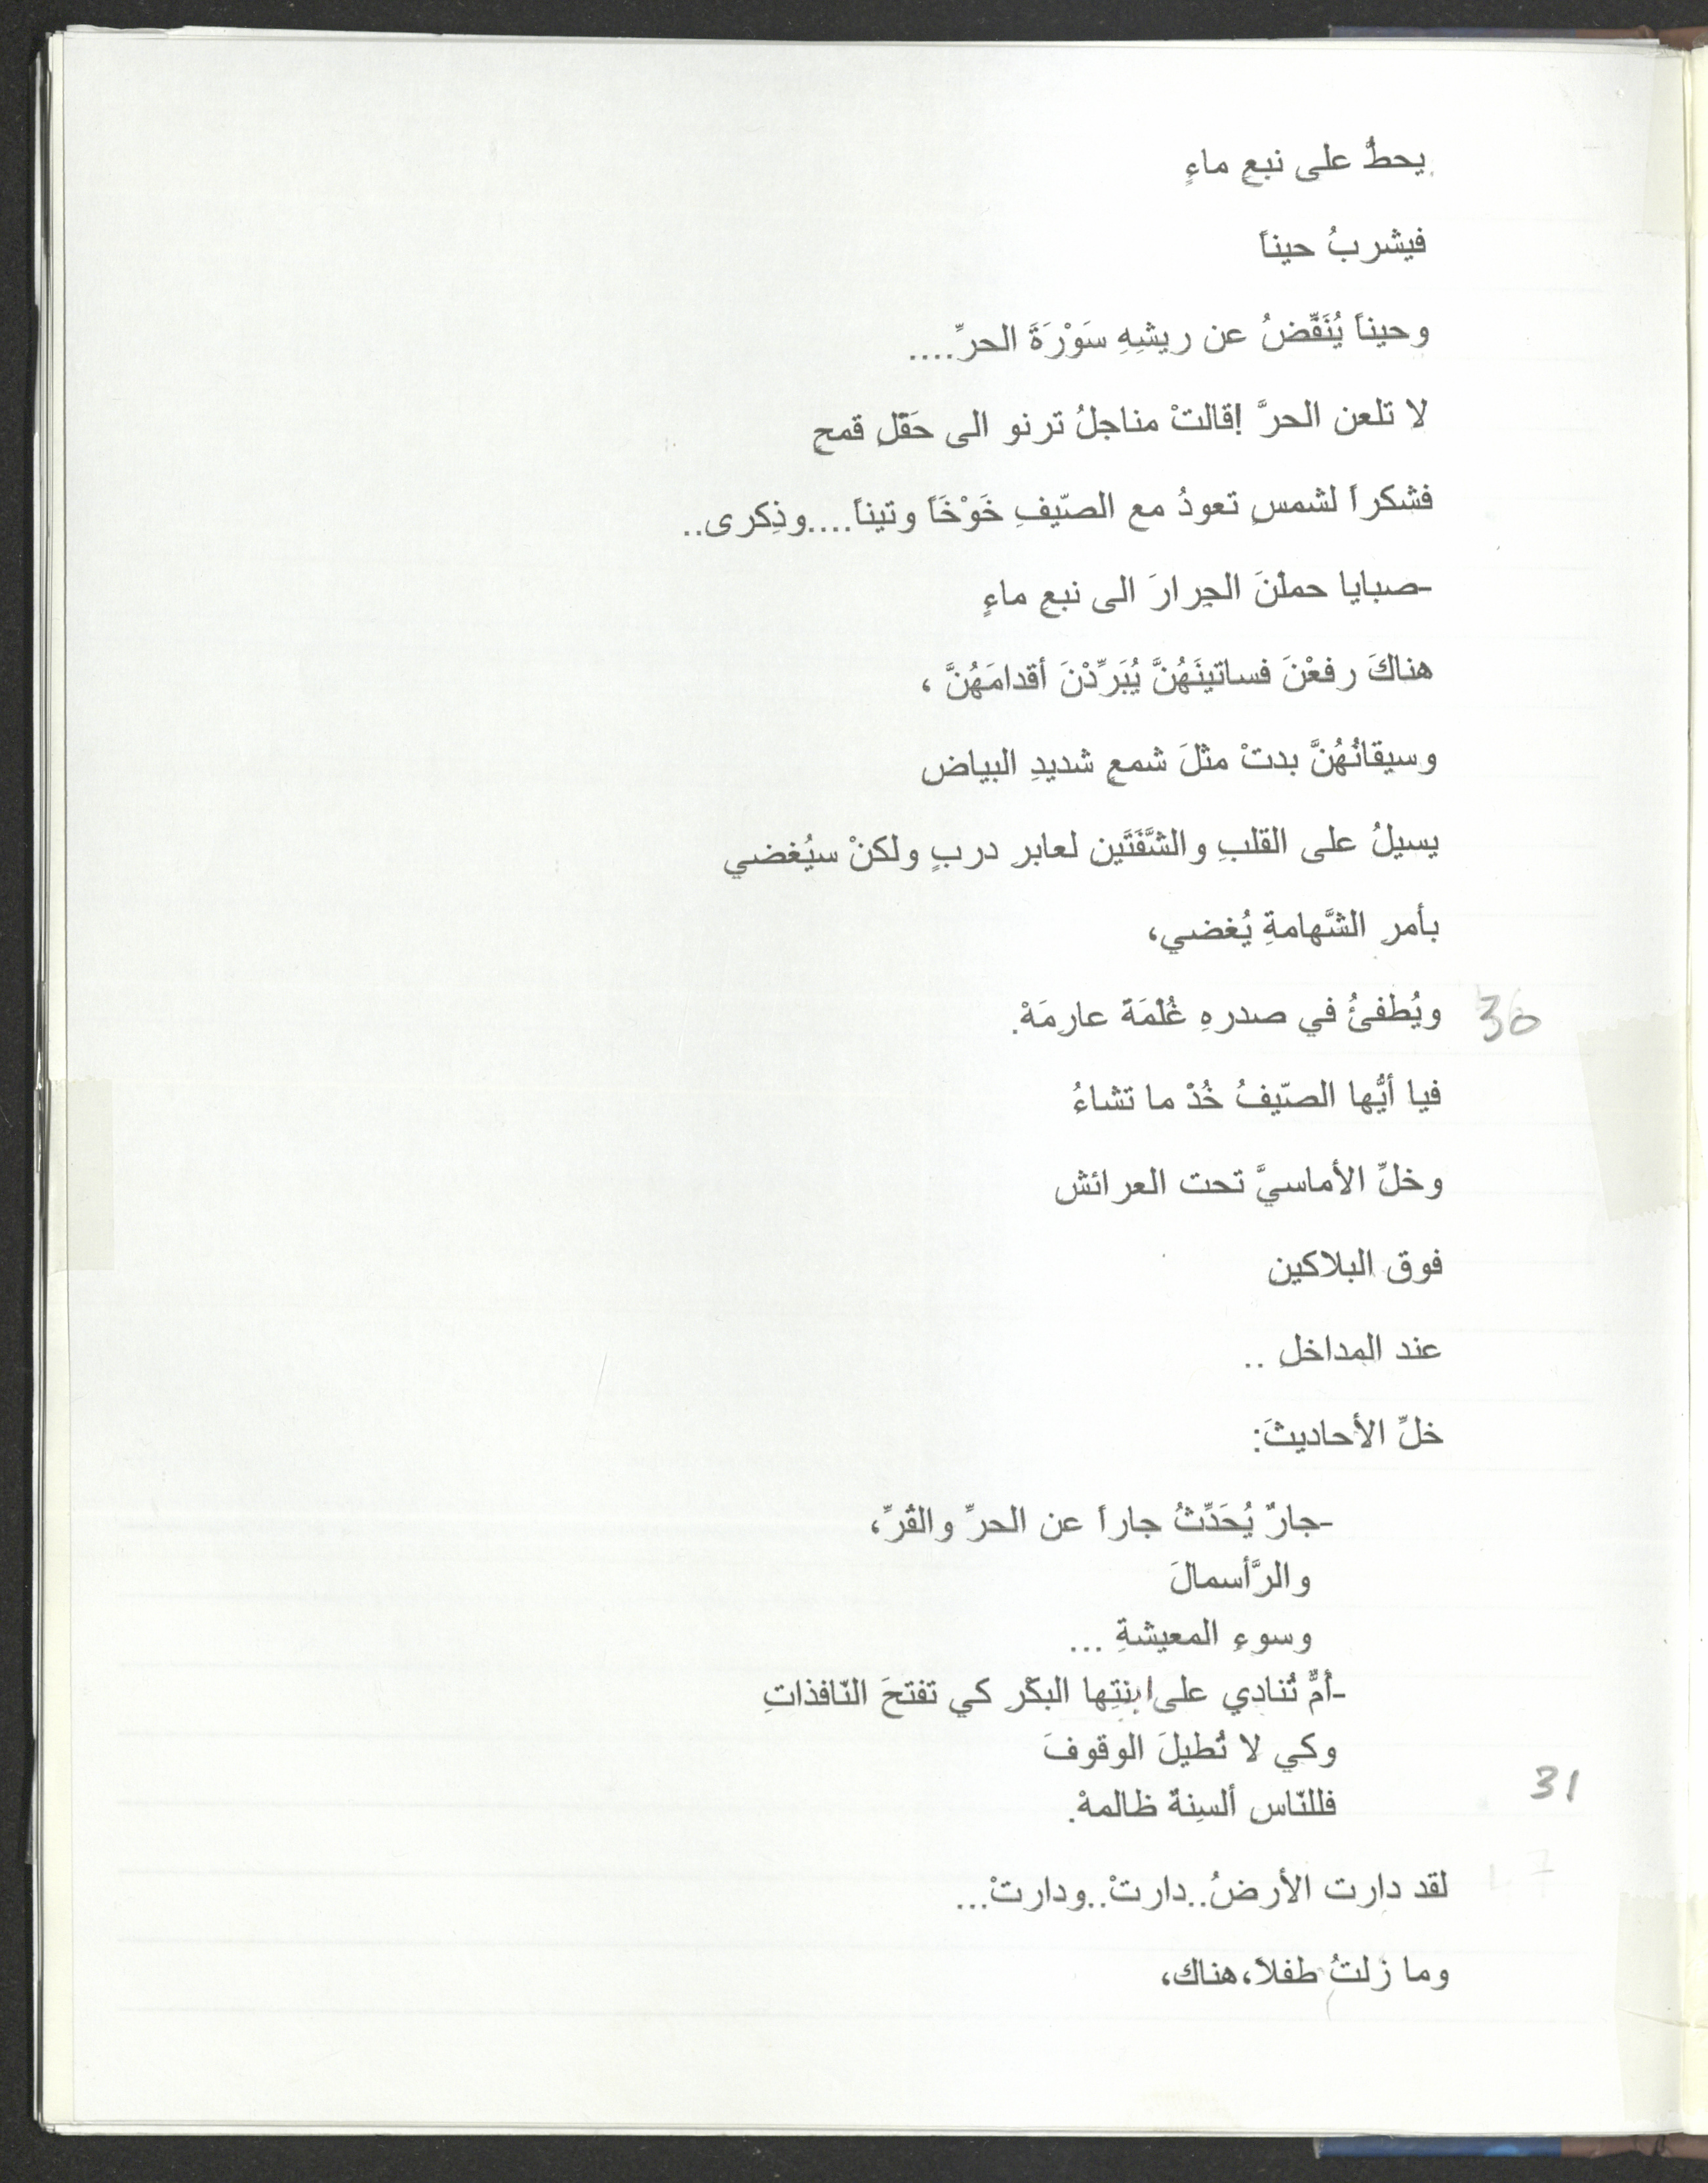 يحطُّ على نبعِ ماءٍ
فيشربُ حيناً
وحيناً يُنَفِّضُ عن ريشِهِ سَوْرَةَ الحرِّ....
لا تلعن الحرَّ !قالتْ مناجلُ ترنو الى حَقْلِ قمحٍ
فشكراً لشمسٍ تعودُ مع الصّيفِ خَوْخَاً وتيناً....وذِكرى..
-صبايا حملْنَ الجِرارَ الى نبعِ ماءٍ
هناكَ رفعْنَ فساتينَهُنَّ يُبَرِّدْنَ أقدامَهُنَّ ،
وسيقانُهُنَّ بدتْ مثلَ شمعٍ شديدِ البياض
يسيلُ على القلبِ والشَّفَتَينِ لعابرِ دربٍ ولكنْ سيُغضي
بأمرِ الشَّهامةِ يُغضي،
ويُطفئُ في صدرهِ غُلْمَةً عارمَهْ. 30
فيا أيُّها الصّيفُ خُذْ ما تشاءُ
وخلِّ الأماسيَّ تحت العرائش
فوق البلاكين
عند المداخل ..
خلِّ الأحاديثَ:
-جارٌ يُحَدِّثُ جاراً عن الحرِّ والقُرِّ،
والرَّأسمالَ
وسوءِ المعيشةِ ...
-أمٌّ تُنادي على ابنتِها البكْرِ كي تفتحَ النّافذاتِ
وكي لا تُطيلَ الوقوفَ
31
فللنّاس ألسِنةٌ ظالمهْ.
لقد دارت الأرضُ..دارتْ..ودارتْ...
وما زلتُ طفلاً،هناك،